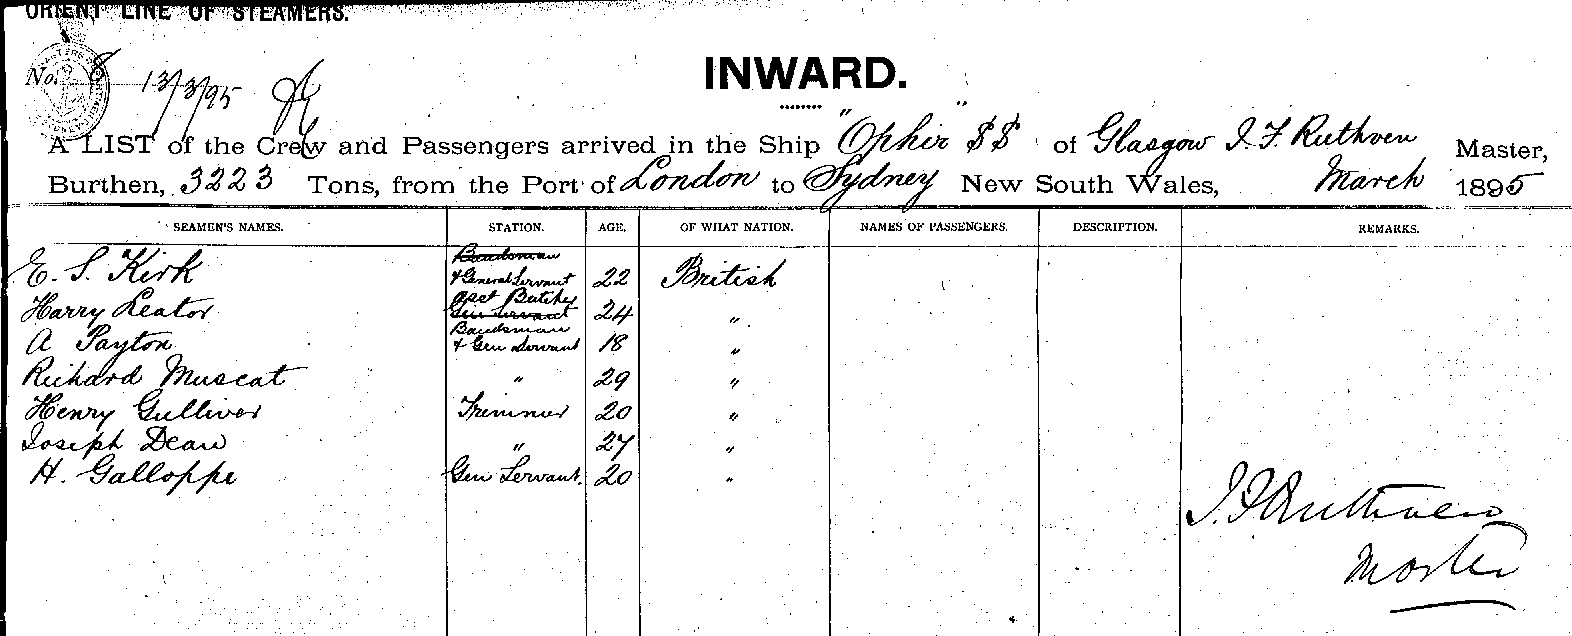 ORIENT LINE OF STEAMERS.
No. 8 13/3/95
INWARD.
A LIST of the Crew and Passengers arrived in the Ship "Ophir" SS of Glasgow J. F. Ruthven Master,
Burthen, 3223 Tons, from the Port of London to Sydney New South Wales, March 1895
SEAMEN'S NAMES. STATION. AGE. OF WHAT NATION. NAMES OF PASSENGERS. DESCRIPTION. REMARKS.
Bandsman
E. S. Kirk & General Servant 22 British
Asst Butcher
Harry Leator Gen Servant 24 "
Bandsman
A Payton & Gen Servant 18 "
Richard Muscat " 29 "
Henry Gulliver Trimmer 20 "
Joseph Dean " 27 "
H. Galloppe Gen Servant. 20 "
J. F. Ruthven
Master